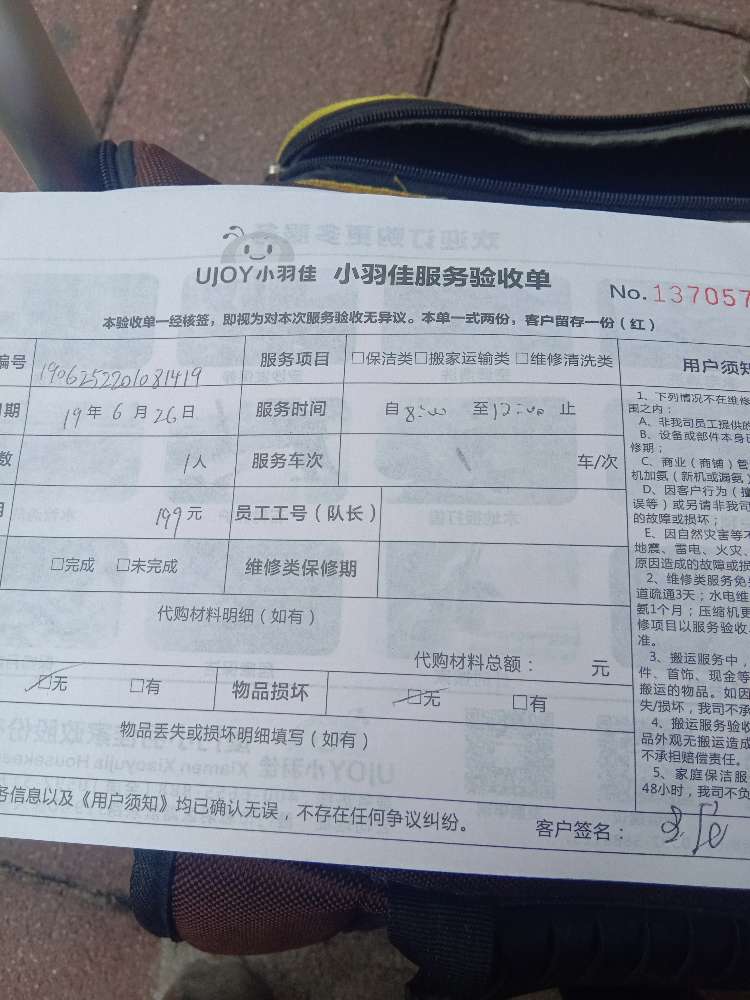 UJOY小羽佳 小羽佳服务验收单
No.137057
本验收单一经核签，即视为对本次服务验收无异议。本单一式两份，客户留存一份（红）
编号 1906252201081419 服务项目 □保洁类□搬家运输类□维修清洗类 用户须知
期 19年6月26日 服务时间 自8:00 至12:00 止
数 1人 服务车次 车/次
199元 员工工号（队长）
□完成 □未完成 维修类保修期
代购材料明细（如有）
代购材料总额： 元
□无 □有 物品损坏 □无 □有
物品丢失或损坏明细填写（如有）
务信息以及《用户须知》均已确认无误，不存在任何争议纠纷。 客户签名：
1、下列情况不在维修
围之内：
A、非我司员工提供的
B、设备或部件本身已
修期；
C、商业（商铺）管
机加氨（新机或漏氨）
D、因客户行为（撞
误等）或另请非我司
的故障或损坏；
E、因自然灾害等不
地震、雷电、火灾、
原因造成的故障或损
2、维修类服务免
道疏通3天；水电维
氨1个月；压缩机更
修项目以服务验收
准。
3、搬运服务中，
件、首饰、现金等
搬运的物品。如因
失/损坏，我司不承
4、搬运服务验收
品外观无搬运造成
不承担赔偿责任。
5、家庭保洁服
48小时，我司不负